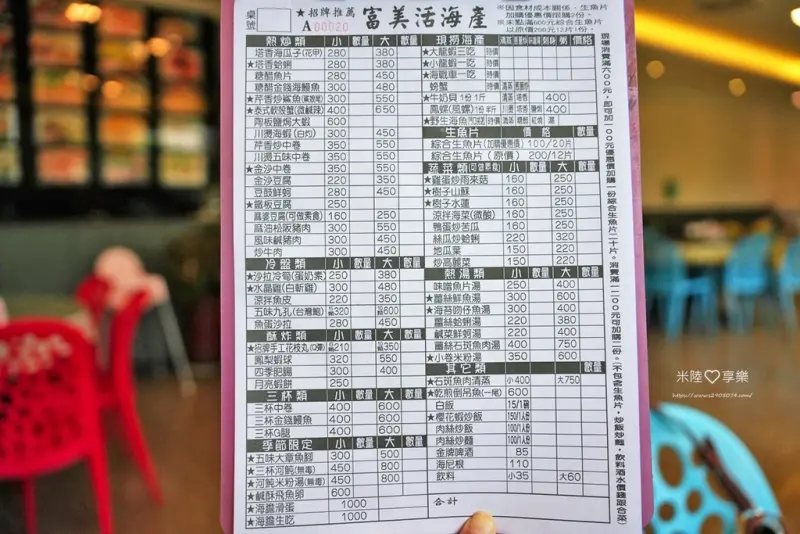 桌號
★招牌推薦 富美活海產
A00020
※因食材成本關係，生魚片
加購優惠價限購2份。
※未點滿600元享生魚片
以原價200元12片1份。
熱炒類 小 數量 大 數量
塔香海瓜子(花甲) 280 380
★塔香蛤蜊 280 380
糖醋魚片 280 450
糖醋金錢海鰻魚 300 480
★芹香炒鯊魚 350 550
★泰式軟殼蟹(微鹹辣) 400 650
陶板鹽焗大蝦 600
川燙海蝦(白灼) 300 450
芹香炒中卷 350 550
川燙五味中卷 350 550
★金沙中卷 350 550
金沙豆腐 220 350
豆鼓鮮蚵 280 450
★鐵板豆腐 250
麻婆豆腐(可做素食) 160 250
麻油松阪豬肉 300 550
風味鹹豬肉 300 450
炒牛肉 300 450
冷盤類 小 數量 大 數量
★沙拉冷筍(蛋奶素) 250 380
★水晶雞(白斬雞) 300 480
涼拌魚皮 220 350
五味九孔(台灣鮑) 320 600
魚蛋沙拉 280 450
酥炸類 小 數量 大 數量
★招牌手工花枝丸 210 350
鳳梨蝦球 320 550
四季肥腸 300 400
月亮蝦餅 250
三杯類 小 數量 大 數量
三杯中卷 400 600
三杯金錢鰻魚 400 600
三杯G腿 400 600
季節限定 小 數量 大 數量
★五味大章魚腳 300 500
★三杯河魨(無毒) 450 800
★河魨米粉湯(無毒) 450 800
★鹹酥飛魚卵 600
★海膽滑蛋 1000
★海膽生吃 1000
現撈海產 價格
★大龍蝦三吃 特價
★小龍蝦一吃 特價
★海戰車一吃 特價
螃蟹 特價
★牛奶貝 1份1斤 清蒸 塔香 400
鳳螺(風螺) 1份半斤 400
★野生海魚 特價 清蒸 紅燒 湯
生魚片 價格 數量
綜合生魚片(加購優惠價) 100/20片
綜合生魚片(原價) 200/12片
蔬菜類(可做素食) 小 數量 大 數量
★雞蛋炒雨來菇 160 250
★樹子山蘇 160 250
★樹子水蓮 160 250
涼拌海菜(微酸) 160 250
鴨蛋炒苦瓜 160 250
絲瓜炒蛤蜊 220 320
地瓜葉 150 220
炒高麗菜 150 220
熱湯類 小 數量 大 數量
味噌魚片湯 250 400
★薑絲鮮魚湯 300 600
★海菩吻仔魚湯 300 480
薑絲蛤蜊湯 220 380
鹹菜鮮蚵湯 220 400
薑絲石斑魚肉湯 400 750
★小卷米粉湯 350 600
其它類 數量
★石斑魚肉清蒸 小400 大750
★乾煎倒吊魚(一尾) 600
白飯 15/1碗
★櫻花蝦炒飯 150/1人份
肉絲炒飯 100/1人份
肉絲炒麵 100/1人份
金牌啤酒 85
海尼根 110
飲料 小35 大60
合計
現場消費滿六00元，即可加100元優惠價加購一份綜合生魚片二十片。消費滿一二00元可加購二份。(不包含生魚片，炒飯炒麵，飲料酒水價錢跟合菜)
米陸♡享樂